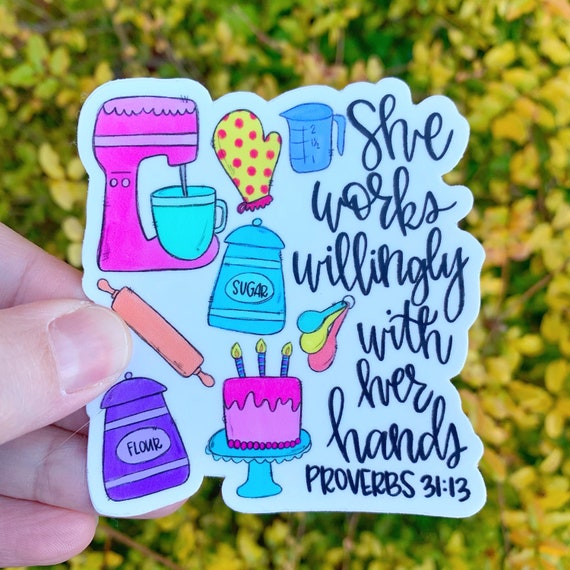 She
works
willingly
with
her
hands
PROVERBS 31:13
2
1½
1
SUGAR
FLOUR